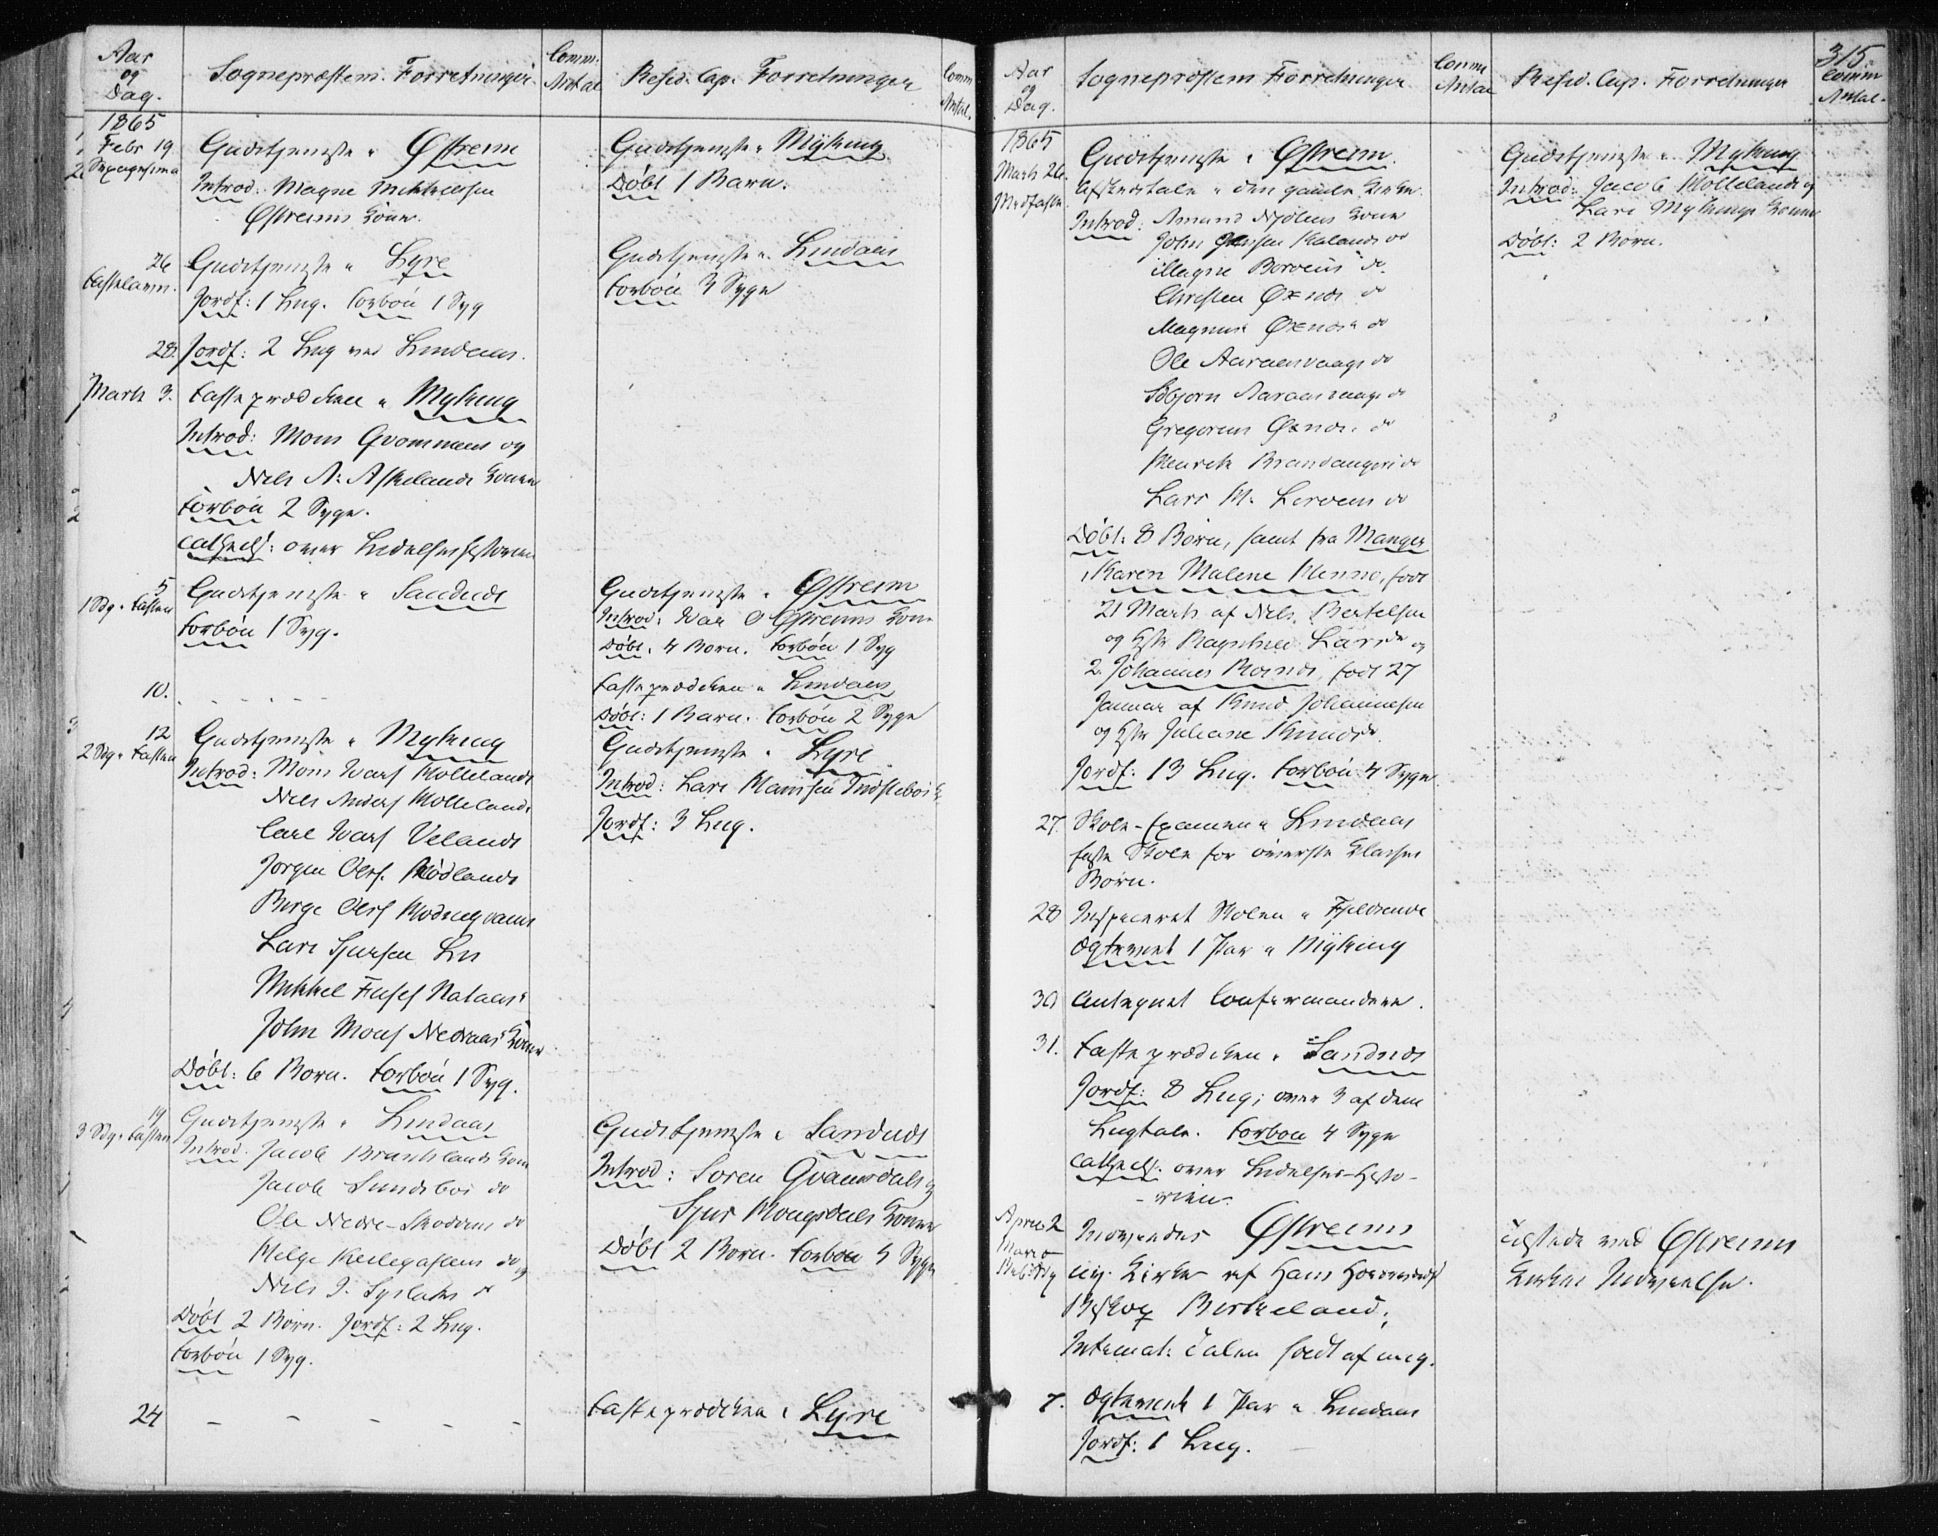 Aar
og
Dag.
Sognepræstens Forretninger
Comm.
Antal
Resid. Cap. Forretninger
Comm
Antal.
1865
Febr 19
Sexagesima
Gudstjeneste i Østreim
Introd: Magne Mikkelsen
Østreims Kone.
Gudstjeneste i Myking
Døbt 1 Barn.
26
Fastelavn.
Gudstjeneste i Lyre
Jordf: 1 Liig. Forbøn 1 Syg
Gudstjeneste i Lindaas
Forbøn 3 Syge
28. Jordf: 2 Liig ved Lindaas.
Marts 3. Fasteprædiken i Myking
Introd: Mons Qvommens og
Nels A: Askelands Koner
Forbøn 2 Syge.
Cathech: over Lidelseshistorien
5
1 Sdg i Fasten
Gudstjeneste i Sandnæs
Forbøn 1 Syg.
Gudstjeneste i Østreim
Introd: Ivar O Østreims Kone
Døbt: 4 Børn. Forbøn 1 Syg
10. - - - -
Fasteprædiken i Lindaas
Døbt: 1 Barn. Forbøn 2 Syge
12
2 Sdg i Fasten
Gudstjeneste i Myking
Introd: Mons Ivars Kollelands
Nels Anders Kollelands
Carl Ivars Velands
Jørgen Olers. Rødlands
Birge Olers
Lars Sjursen Lis
Mikkel
John Mons Nedraas Koner
Døbt: 6 Børn. Forbøn 1 Syg.
Gudstjeneste i Lyre
Introd: Lars Hansen
Jordf: 3 Liig.
19
3 Sdg i Fasten
Gudstjeneste i Lindaas
Introd: Jacob Kone
Jacob Sundsbøs do
Ole Nedre- do
Helge do og
Nels J.
Døbt 2 Børn. Jordf: 2 Liig.
Forbøn 1 Syg.
Gudstjeneste i Sandnæs
Introd: Søren Qvamsdals og
Sjur Kougsdals Koner
Døbt 2 Børn. Forbøn 5 Syge
24 - - - - -
Fasteprædiken i Lyre
315.
Aar
og
Dag.
Sognepræstens Forretninger
Comm
Antal
Resid. Cap. Forretninger
Comm
Antal.
1865
Marts 26.
Midfaste
Gudstjeneste i Østreim.
Afskedstale i den gamle Kirke
Introd: Amund Mjølens Kone
John Jensen do
Magne do.
Christen Øxnæs do
Magnus Øxnæs do
Ole Aaraasvaags do
Sibjørn Aaraasvaags do
Gregorius Øxnæs do
Henrik Brandangers do
Lars M. Lervens do
Døbt: 8 Børn, samt fra Manger
1, Karen Malene Menno, født
21 Marts af Nels Bertelsen
og Hstr Ragnhild Larsdr og
2. Johannes født 27
Januar af Knud Johannesen
og Hstr Juliane Knudsdr.
Jordf: 13 Liig. Forbøn 4 Syge
Gudstjeneste i Myking
Introd: Jacob Kollelands og
Lars Mykings Koner
Døbt: 2 Børn.
27. Skole-Examen i Lindaas
faste Skole for øverste Klasses
Børn.
28 Inspiceret Skolen i Fjeldsende
Ægteviet 1 Par i Myking
30 Antegnet Confirmanderne.
31. Fasteprædiken i Sandnæs
Jordf: 8 Liig; over 3 af dem
Liigtale. Forbøn 4 Syge
Cathech. over Lidelses-Histo-
rien.
April 2
Mariæ
Beb: Dg
Indviedes Østreims
ny Kirke af Hans Høiærværdighed
Biskop Birkeland;
Intimat: Talen holdt af mig.
Tilstede ved Østreims
Kirkes Indvielse.
7. Ægteviet 1 Par i Lindaas
Jordf: 1 Liig.